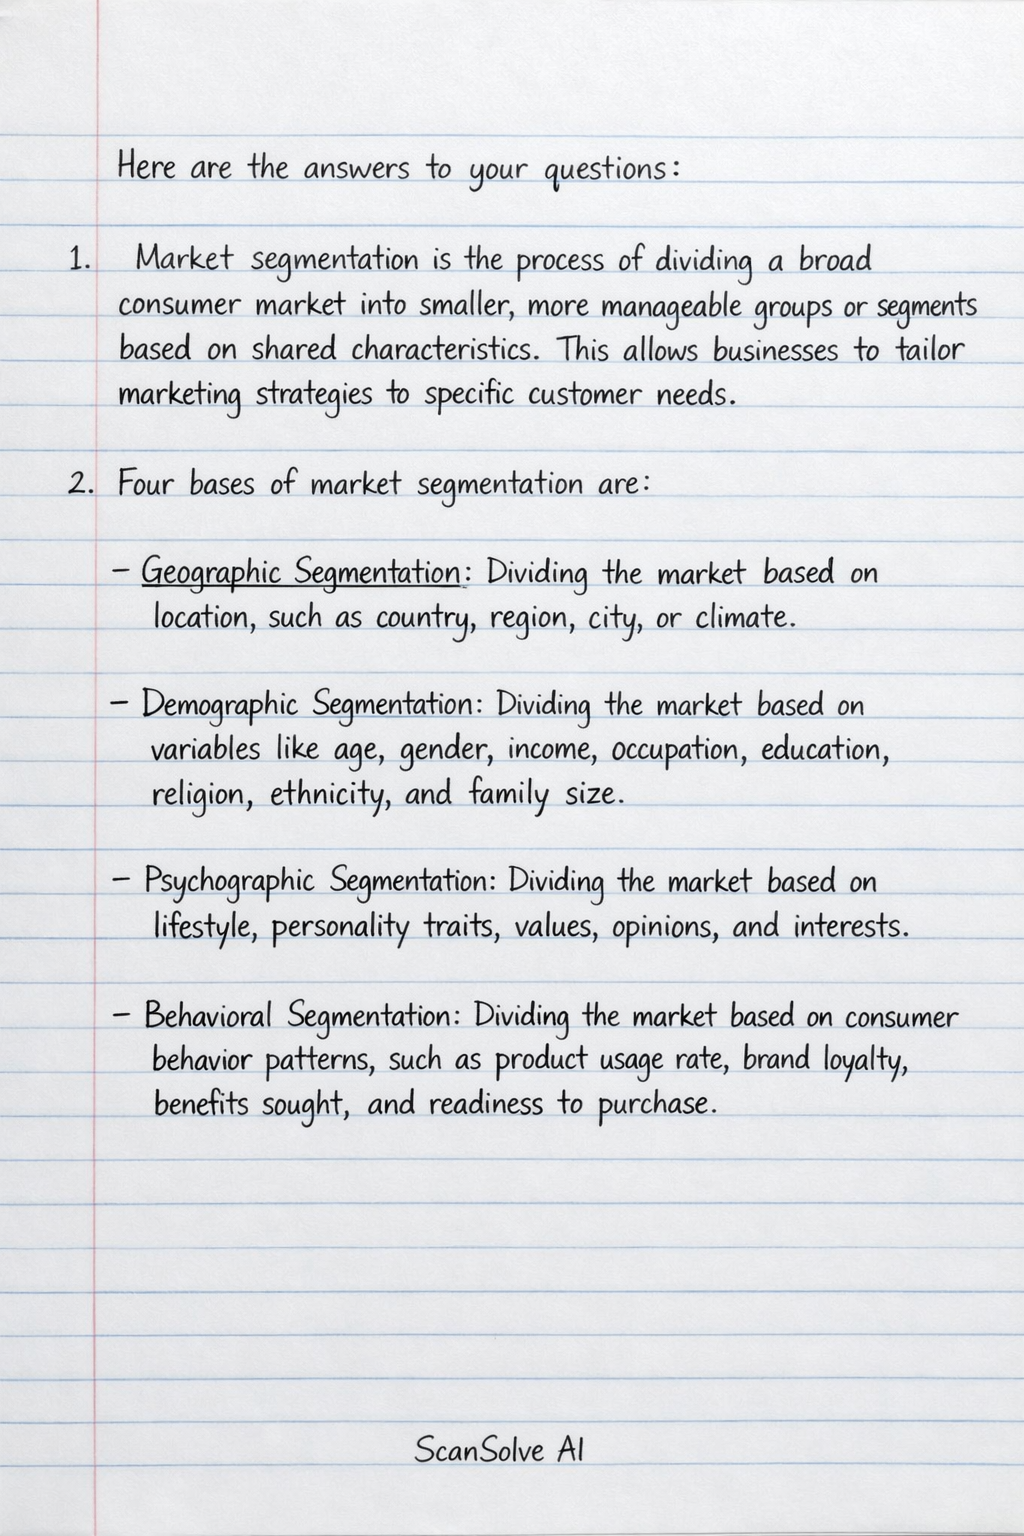 Here are the answers to your questions:
1. Market segmentation is the process of dividing a broad
consumer market into smaller, more manageable groups or segments
based on shared characteristics. This allows businesses to tailor
marketing strategies to specific customer needs.
2. Four bases of market segmentation are:
– Geographic Segmentation: Dividing the market based on
location, such as country, region, city, or climate.
– Demographic Segmentation: Dividing the market based on
variables like age, gender, income, occupation, education,
religion, ethnicity, and family size.
– Psychographic Segmentation: Dividing the market based on
lifestyle, personality traits, values, opinions, and interests.
– Behavioral Segmentation: Dividing the market based on consumer
behavior patterns, such as product usage rate, brand loyalty,
benefits sought, and readiness to purchase.
ScanSolve AI